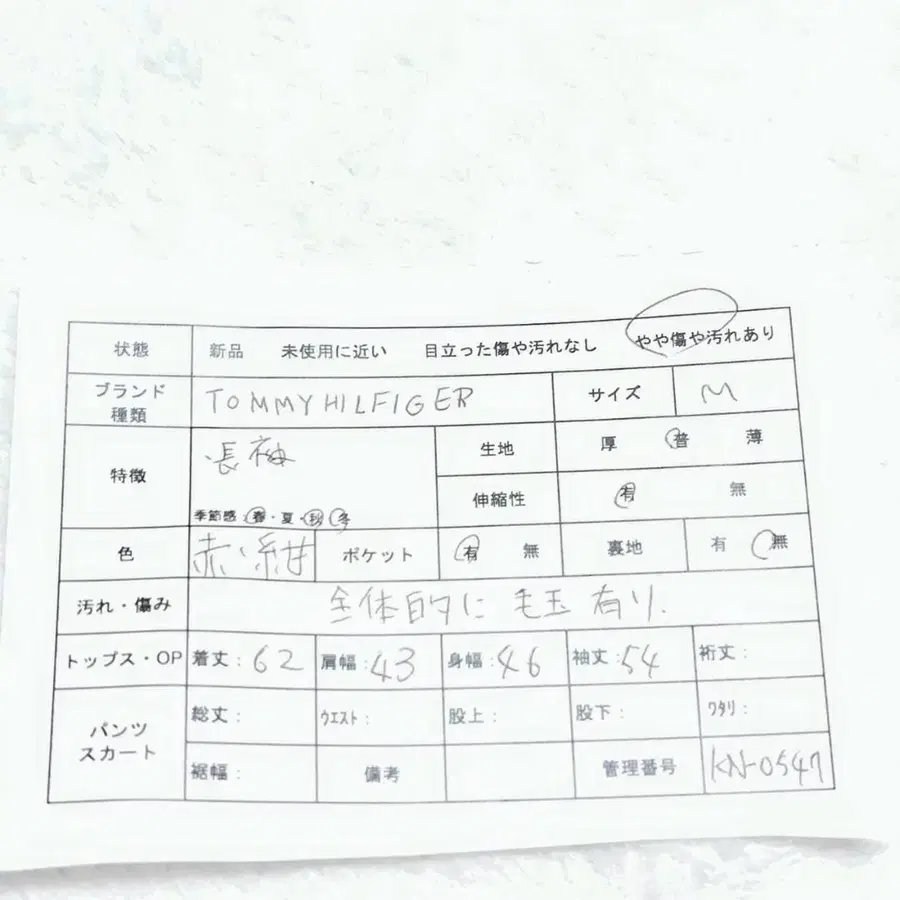 状態 新品 未使用に近い 目立った傷や汚れなし やや傷や汚れあり
ブランド 種類 TOMMY HILFIGER サイズ M
特徴 長袖 生地 厚 普 薄
伸縮性 有 無
季節感:春・夏・秋・冬
色 赤・紺 ポケット 有 無 裏地 有 無
汚れ・傷み 全体的に毛玉有り.
トップス・OP 着丈:62 肩幅:43 身幅:46 袖丈:54 裄丈:
パンツ スカート 総丈: ウエスト: 股上: 股下: ワタリ:
裾幅: 備考 管理番号 KN-0547